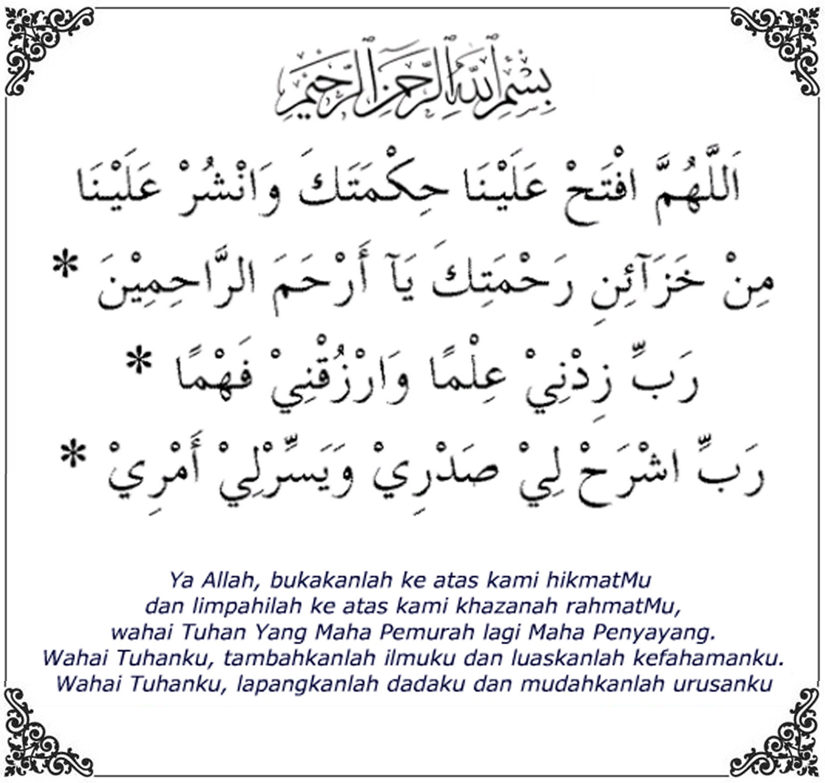 بِسْمِ اللَّهِ الرَّحْمَنِ الرَّحِيْمِ
اَللَّهُمَّ افْتَحْ عَلَيْنَا حِكْمَتَكَ وَانْشُرْ عَلَيْنَا
مِنْ خَزَآئِنِ رَحْمَتِكَ يَآ أَرْحَمَ الرَّاحِمِيْنَ *
رَبِّ زِدْنِيْ عِلْمًا وَارْزُقْنِيْ فَهْمًا *
رَبِّ اشْرَحْ لِيْ صَدْرِيْ وَيَسِّرْلِيْ أَمْرِيْ *
Ya Allah, bukakanlah ke atas kami hikmatMu
dan limpahilah ke atas kami khazanah rahmatMu,
wahai Tuhan Yang Maha Pemurah lagi Maha Penyayang.
Wahai Tuhanku, tambahkanlah ilmuku dan luaskanlah kefahamanku.
Wahai Tuhanku, lapangkanlah dadaku dan mudahkanlah urusanku